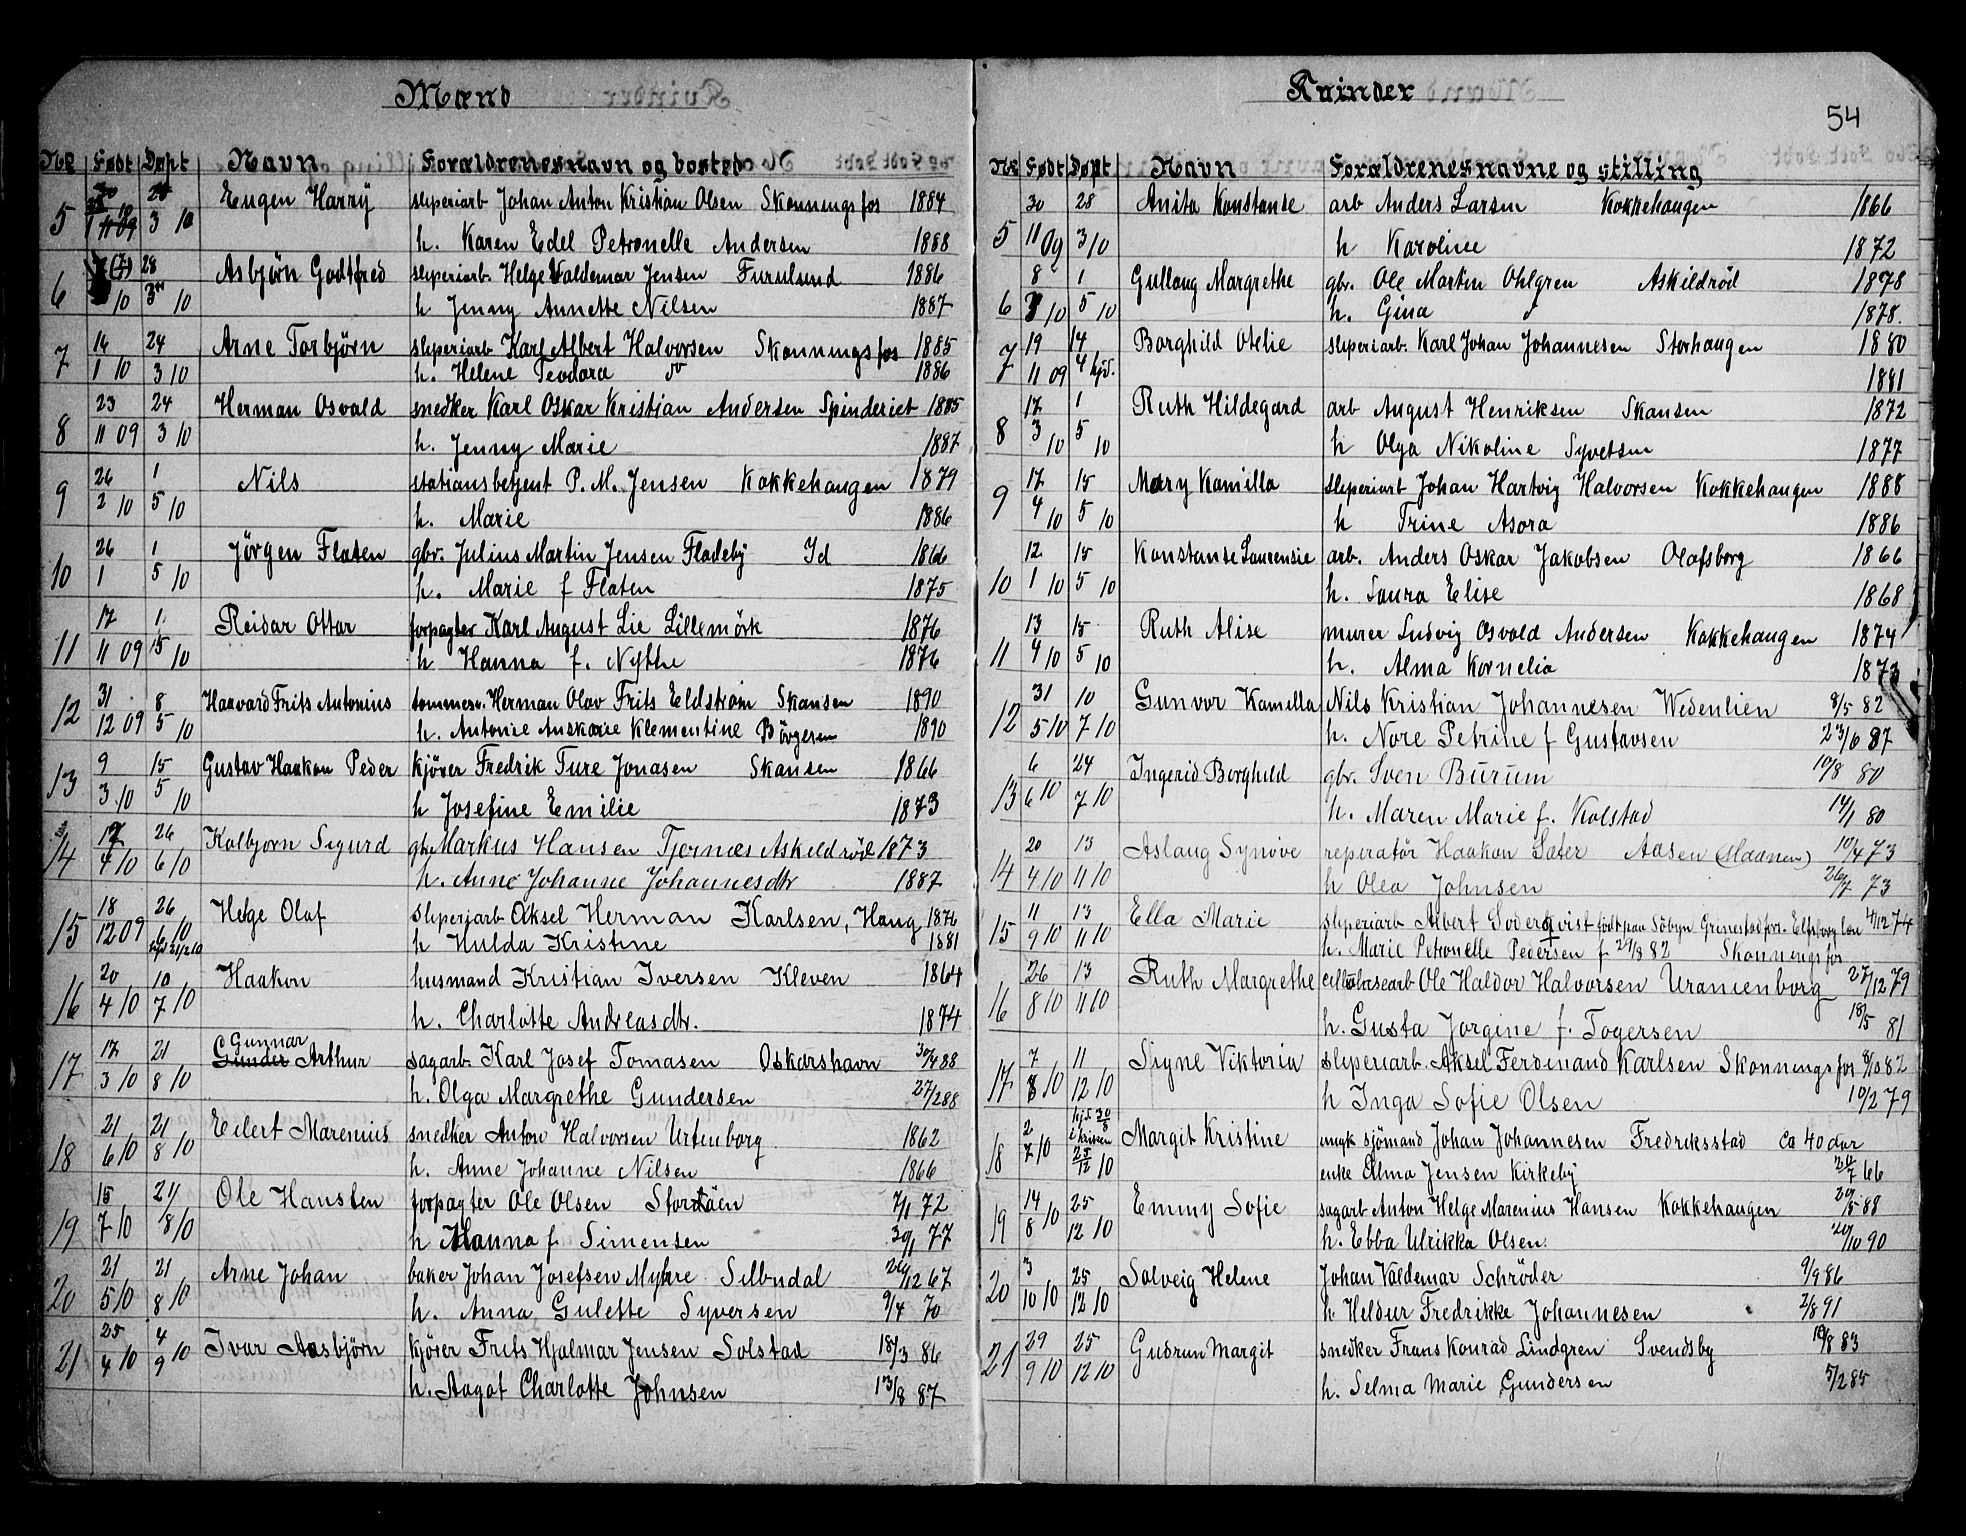 Mænd
No Født Døpt Navn Forældrenes navn og bosted
5 28 Eugen Harry sliperiarb Johan Anton Kristian Olsen Skonningsfos 1884
3 10 h. Karen Edel Petronelle Andersen 1888
6 (7) 28 Asbjørn Godtfred sliperiarb. Helge Valdemar Jensen Furulund 1886
10 3 10 h Jenny Annette Nilsen 1887
7 14 24 Arne Torbjörn sliperiarb Karl Albert Halvorsen Skonningsfos 1885
1 10 3 10 h. Helene Teodora do 1886
8 23 24 Herman Osvald snedker Karl Oskar Kristian Andersen Spinderiet 1885
11 09 3 10 h. Jenny Marie 1887
9 26 1 Nils stationsbetjent P. M. Jensen Kokkehaugen 1879
2 10 5 10 h. Marie 1886
10 26 1 Jörgen Flaten gbr. Julius Martin Jensen Fladeby Id 1866
1 5 10 h. Marie f Flaten 1875
11 17 1. Reidar Ottar forpagter Karl August Lie Lillemörk 1876
11 09 15 10 h Hanna f. Nythe 1876
12 31 8 Haavard Frits Antonius tømmerm. Herman Olav Frits Eldstrøm Skansen 1890
12 09 5 10 h. Antonie Anskarie Klementine Börgesen 1890
13 9 15 Gustav Haakon Peder kjörer Fredrik Ture Jonasen Skansen 1866
3 10 5 10 h Josefine Emilie 1873
14 17 26 Kolbjørn Sigurd gb. Markus Hansen Tjernæs Askildröd 1873
4 10 6 10 h. Anne Johanne Johannesdtr 1887
15 18 26 Helge Olaf sliperiarb Aksel Herman Karlsen, Haug 1876
12 09 6 10 h Hulda Kristine 1881
16 20 10 Haakon husmand Kristian Iversen Kleven 1864
4 10 7 10 h. Charlotte Andreasdtr. 1874
Gunnar
17 17 21 Gunder Arthur sagarb. Karl Josef Tomasen Oskarshavn 30/4 88
3 10 8 10 h. Olga Margrethe Gundersen 27/2 88
18 21 21 Eilert Marenius snedker Anton Halvorsen Urtenborg 1862
6 10 8 10 h. Anne Johanne Nilsen 1866
19 15 21 Ole Hansten forpagter Ole Olsen Stortöen 7/1 72
7 10 8 10 h Hanna f Simensen 30/1 77
20 21 21 Arne Johan baker Johan Josefsen Myhre Silbudal 26/12 67
5 10 8 10 h. Anna Gulette Syversen 9/4 70
21 25 4 Ivar Aasbjörn kjörer Frits Hjalmar Jensen Solstad 18/3 86
4 10 9 10 h. Aagot Charlotte Johnsen 13/8 87
Kvinder
54
No Født Døpt Navn Forældrenes navne og stilling
5 30 28 Anita Konstanse arb Anders Larsen Kokkehaugen 1866
11 09 3 10 h Karoline 1872
6 8 1 Gullaug Margrethe gbr. Ole Martin Ohlgren Askildröd 1878
3 10 5 10 h. Gina 1878.
7 19 14 Borghild Otelie sliperiarb. Karl Johan Johannesen Storhaugen 1880
11 09 4 hjd. 1881
8 17 1 Ruth Hildegard arb August Henriksen Skansen 1872
3 10 5 10 h Olga Nikoline Syvetsen 1877
9 17 15 Mary Kamilla sliperiarb Johan Hartvig Halvorsen Kokkehaugen 1888
4 10 5 10 h Trine Asora 1886
10 12 15 Konstanse Laurensie arb. Anders Oskar Jakobsen Olafsborg 1866
1 10 5 10 h. Laura Elise 1868
11 13 15 Ruth Alise murer Ludvig Osvald Andersen Kokkehaugen 1874
4 10 5 10 h. Alma Kornelia 1873
12 31 10 Gunvor Kamilla Nils Kristian Johannesen Wedenlien 8/5 82
5 10 7 10 h. Nore Petrine f Gustavsen 23/6 87
13 6 24 Ingerid Borghild gbr. Sven Burum 10/8 80
6 10 7 10 h. Maren Marie f. Kolstad 14/1 80
14 20 13 Aslaug Synøve reperatør Haakon Sæter Aasen (Maanen) 10/4 73
4 10 11 10 h Olea Johnsen 26/7 73
15 11 13 Ella Marie sliperiarb Albert Soderqvist födt paa Söbyn Grinestad fors. Elfsborg län 4/12 74
9 10 11 10 h. Marie Petronelle Pedersen f 24/8 82 Skonningsfos
16 26 13 Ruth Margrethe cellulosearb Ole Haldor Halvorsen Uranienborg 27/12 79
8 10 11 10 h. Gusta Jorgine f. Togersen 18/5 81
17 7 11 Signe Viktoria sliperiarb. Aksel Ferdinand Karlsen Skonningsfos 8/10 82
8 10 12 10 h Inga Sofie Olsen 10/2 79
18 2 hjd. 30/8 Margit Kristine ungk sjömand Johan Johannesen Fredriksstad ca 40 aar
7 10 i kirken 25/12 10 enke Alma Jensen Kirkeby 24/7 66
19 14 25 Emmy Sofie sagarb Anton Helge Marenius Hansen Kokkehaugen 29/5 88
8 10 12 10 h. Ebba Ulrikka Olsen. 20/10 90
20 3 25 Solveig Helene Johan Valdemar Schröder 9/9 86
10 10 12 10 h Heldur Fredrikke Johannesen 2/8 91
21 29 25 Gudrun Margit snedker Frans Konrad Lindgren Svendsby 19/8 83
9 10 12 10 h. Selma Marie Gundersen 5/2 85